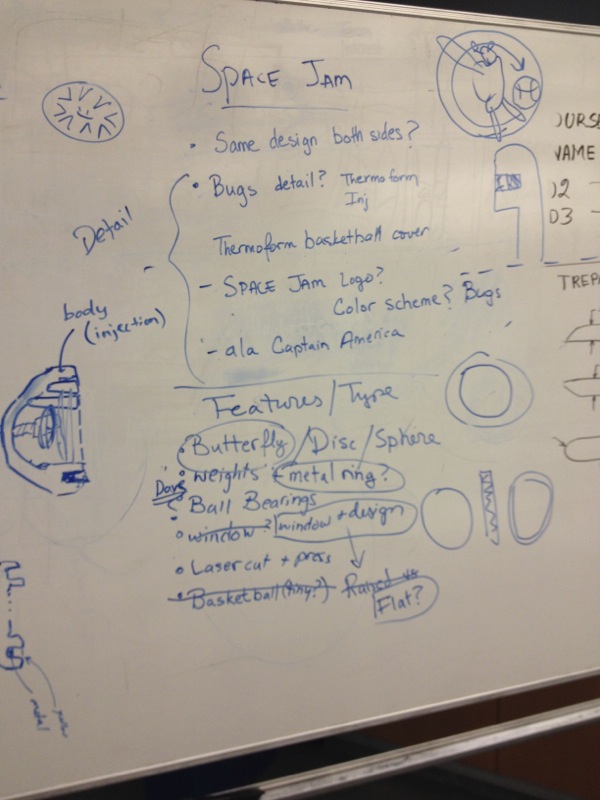 SPACE JAM
• Same design both sides?
• Bugs detail? Thermoform
Inj
Detail
Thermoform basketball cover
- SPACE JAM Logo?
Color scheme? Bugs
- ala Captain America
body
(injection)
Features/Type
• Butterfly/Disc/Sphere
• weights + metal ring?
Dave
• Ball Bearings
• window? window + design
• Laser cut + press
• Basketball (tiny?) Raised vs
Flat?
metal
VAME
D2
D3
TREPA